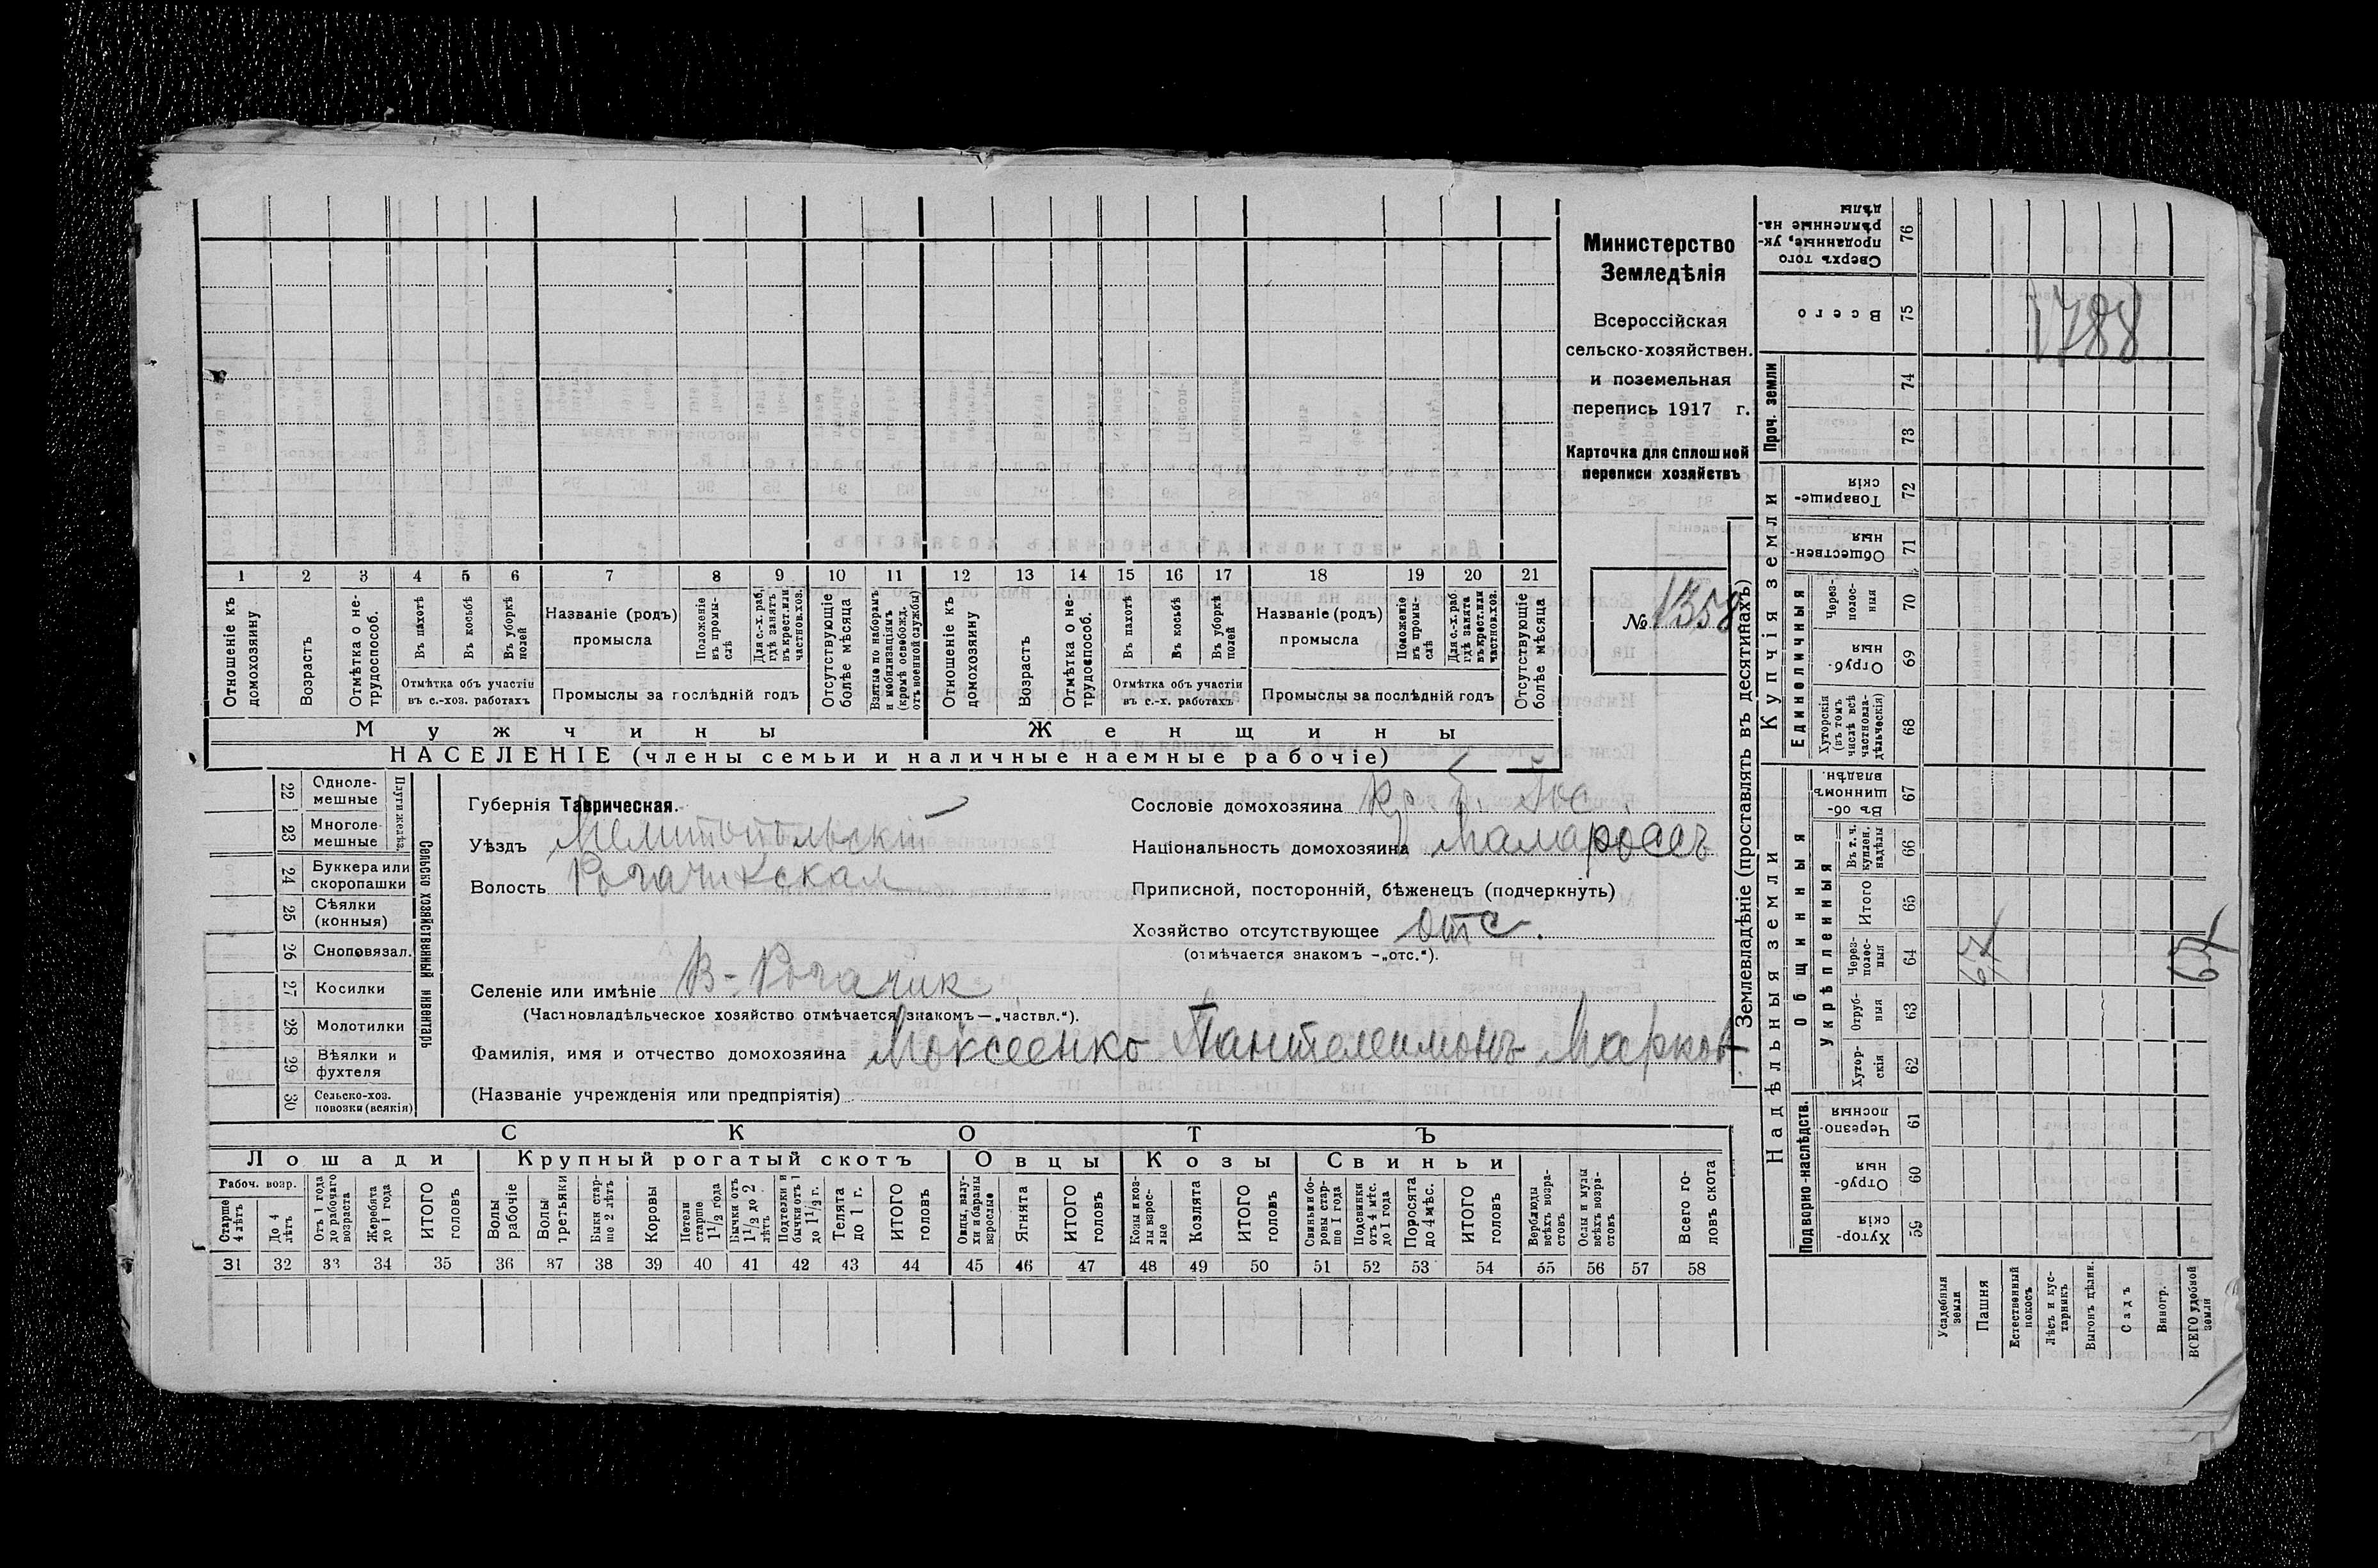 Министерство
Земледѣлія
Всероссійская
сельско-хозяйствен.
и поземельная
перепись 1917 г.
Карточка для сплошной
переписи хозяйствъ
№ 1358
1 2 3 4 5 6 7 8 9 10 11 12 13 14 15 16 17 18 19 20 21
Отношеніе къ домохозяину
Возрастъ
Отмѣтка о не-трудоспособ.
Въ пахотѣ
Въ косьбѣ
Въ уборкѣ полей
Отмѣтка объ участіи
въ с.-хоз. работахъ
Названіе (родъ)
промысла
Положеніе въ промы-слѣ
Для с.-х. раб. гдѣ занятъ въ крест. или частнов. хоз.
Промыслы за послѣдній годъ
Отсутствующіе болѣе мѣсяца
Взятые по наборамъ и мобилизаціямъ (кромѣ освобожд. отъ военной службы)
Отношеніе къ домохозяину
Возрастъ
Отмѣтка о не-трудоспособ.
Въ пахотѣ
Въ косьбѣ
Въ уборкѣ полей
Отмѣтка объ участіи
въ с.-х. работахъ
Названіе (родъ)
промысла
Положеніе въ промы-слѣ
Для с.-х. раб. гдѣ занята въ крест. или частнов. хоз.
Промыслы за послѣдній годъ
Отсутствующіе болѣе мѣсяца
Мужчины Женщины
НАСЕЛЕНІЕ (члены семьи и наличные наемные рабочіе)
22 Одноле-мешные
23 Многоле-мешные
Плуги желѣз.
24 Буккера или скоропашки
25 Сѣялки (конныя)
26 Сноповязал.
27 Косилки
28 Молотилки
29 Вѣялки и фухтеля
30 Сельско-хоз. повозки (всякія)
Сельско хозяйственный инвентарь
Губернія Таврическая.
Уѣздъ Мелитопольскій
Волость Рогачикская
Сословіе домохозяина Кр.
Національность домохозяина Малороссъ
Приписной, посторонній, бѣженецъ (подчеркнуть)
Хозяйство отсутствующее отс.
(отмѣчается знакомъ —„отс.“).
Селеніе или имѣніе В-Рогачик
(Частновладѣльческое хозяйство отмѣчается знакомъ—„частвл.“).
Фамилія, имя и отчество домохозяина Моксеенко Пантелеимонъ Марков
(Названіе учрежденія или предпріятія)
СКОТЪ
Лошади Крупный рогатый скотъ Овцы Козы Свиньи
Рабоч. возр.
Старше 4 лѣтъ
До 4 лѣтъ
Отъ 1 года до рабочаго возраста
Жеребята до 1 года
ИТОГО головъ
Волы рабочіе
Волы третьяки
Быки стар-ше 2 лѣтъ
Коровы
Нетели старше 1 1/2 года
Бычки отъ 1 1/2 до 2 лѣтъ
Подтелки и бычки отъ 1 до 1 1/2 г.
Телята до 1 г.
ИТОГО головъ
Овцы, валу-хи и бараны взрослые
Ягнята
ИТОГО головъ
Козы и коз-лы взрос-лые
Козлята
ИТОГО головъ
Свиньи и бо-ровы стар-ше 1 года
Подсвинки отъ 4 мѣс. до 1 года
Поросята до 4 мѣс.
ИТОГО головъ
Верблюды всѣхъ возра-стовъ
Ослы и мулы всѣхъ возра-стовъ
Всего го-ловъ скота
31 32 33 34 35 36 37 38 39 40 41 42 43 44 45 46 47 48 49 50 51 52 53 54 55 56 57 58
Землевладѣніе (проставлять въ десятинахъ)
Надѣльныя земли Купчія земли Проч. земли
Подворно-наслѣдств. Общинныя Единоличныя
Укрѣпленныя
Хутор-скія 59
Отруб-ныя 60
Черезпо-лосныя 61
Хутор-скія 62
Отруб-ныя 63
Через-полос-ныя 64
Итого 65
Въ т. ч. куплен. надѣлы 66
Въ об-щинномъ владѣн. 67
Хуторскія (въ томъ числѣ всѣ частновла-дѣльческія) 68
Отруб-ныя 69
Через-полос-ныя 70
Обществен-ныя 71
Товарище-скія 72
73
74
Всего 75
Сверхъ того проданные, ук-рѣпленные на-дѣлы 76
Усадебныя земли
Пашня
Естественный покосъ
Лѣсъ и кус-тарникъ
Выгонъ цѣлин.
Садъ
Виногр.
ВСЕГО удобной земли
1788